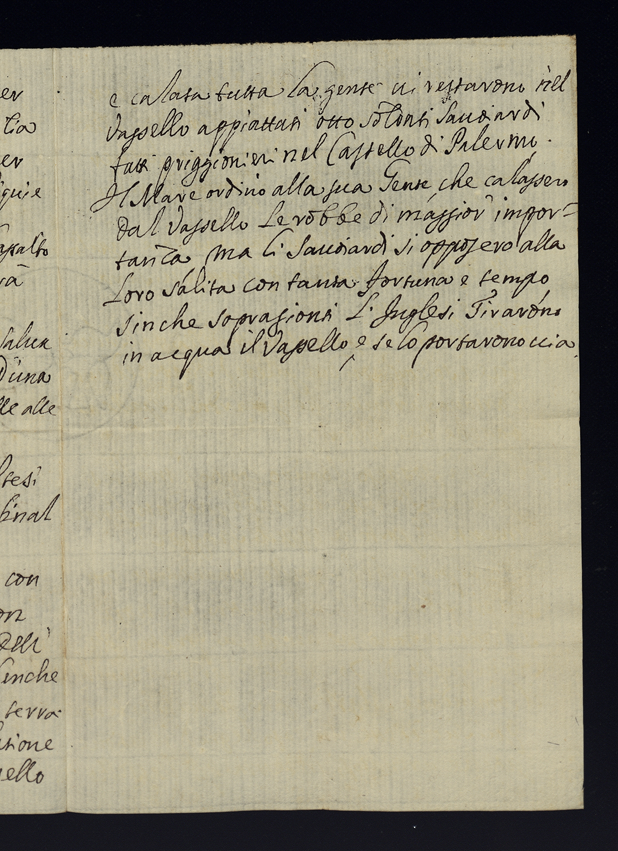 er
tia
er
quie
spalto
rà
salua
D'una
lle alle
ltesi
binal
con
on
Delli
enche
terra
atione
uello
e calata tutta La gente ui restarono nel
Vassello appiattati otto soldati Sauoiardi
fatti priggionieri nel Castello di Palermo.
Il Mare ordinò alla sua Gente che calassero
dal Vassello Le robbe di maggior impor=
tanza ma li Sauoiardi si opposero alla
Loro salita con tanta fortuna e tempo
sinche sopragionti L'Inglesi Tirarono
in acqua il Vassello e se lo portarono uia